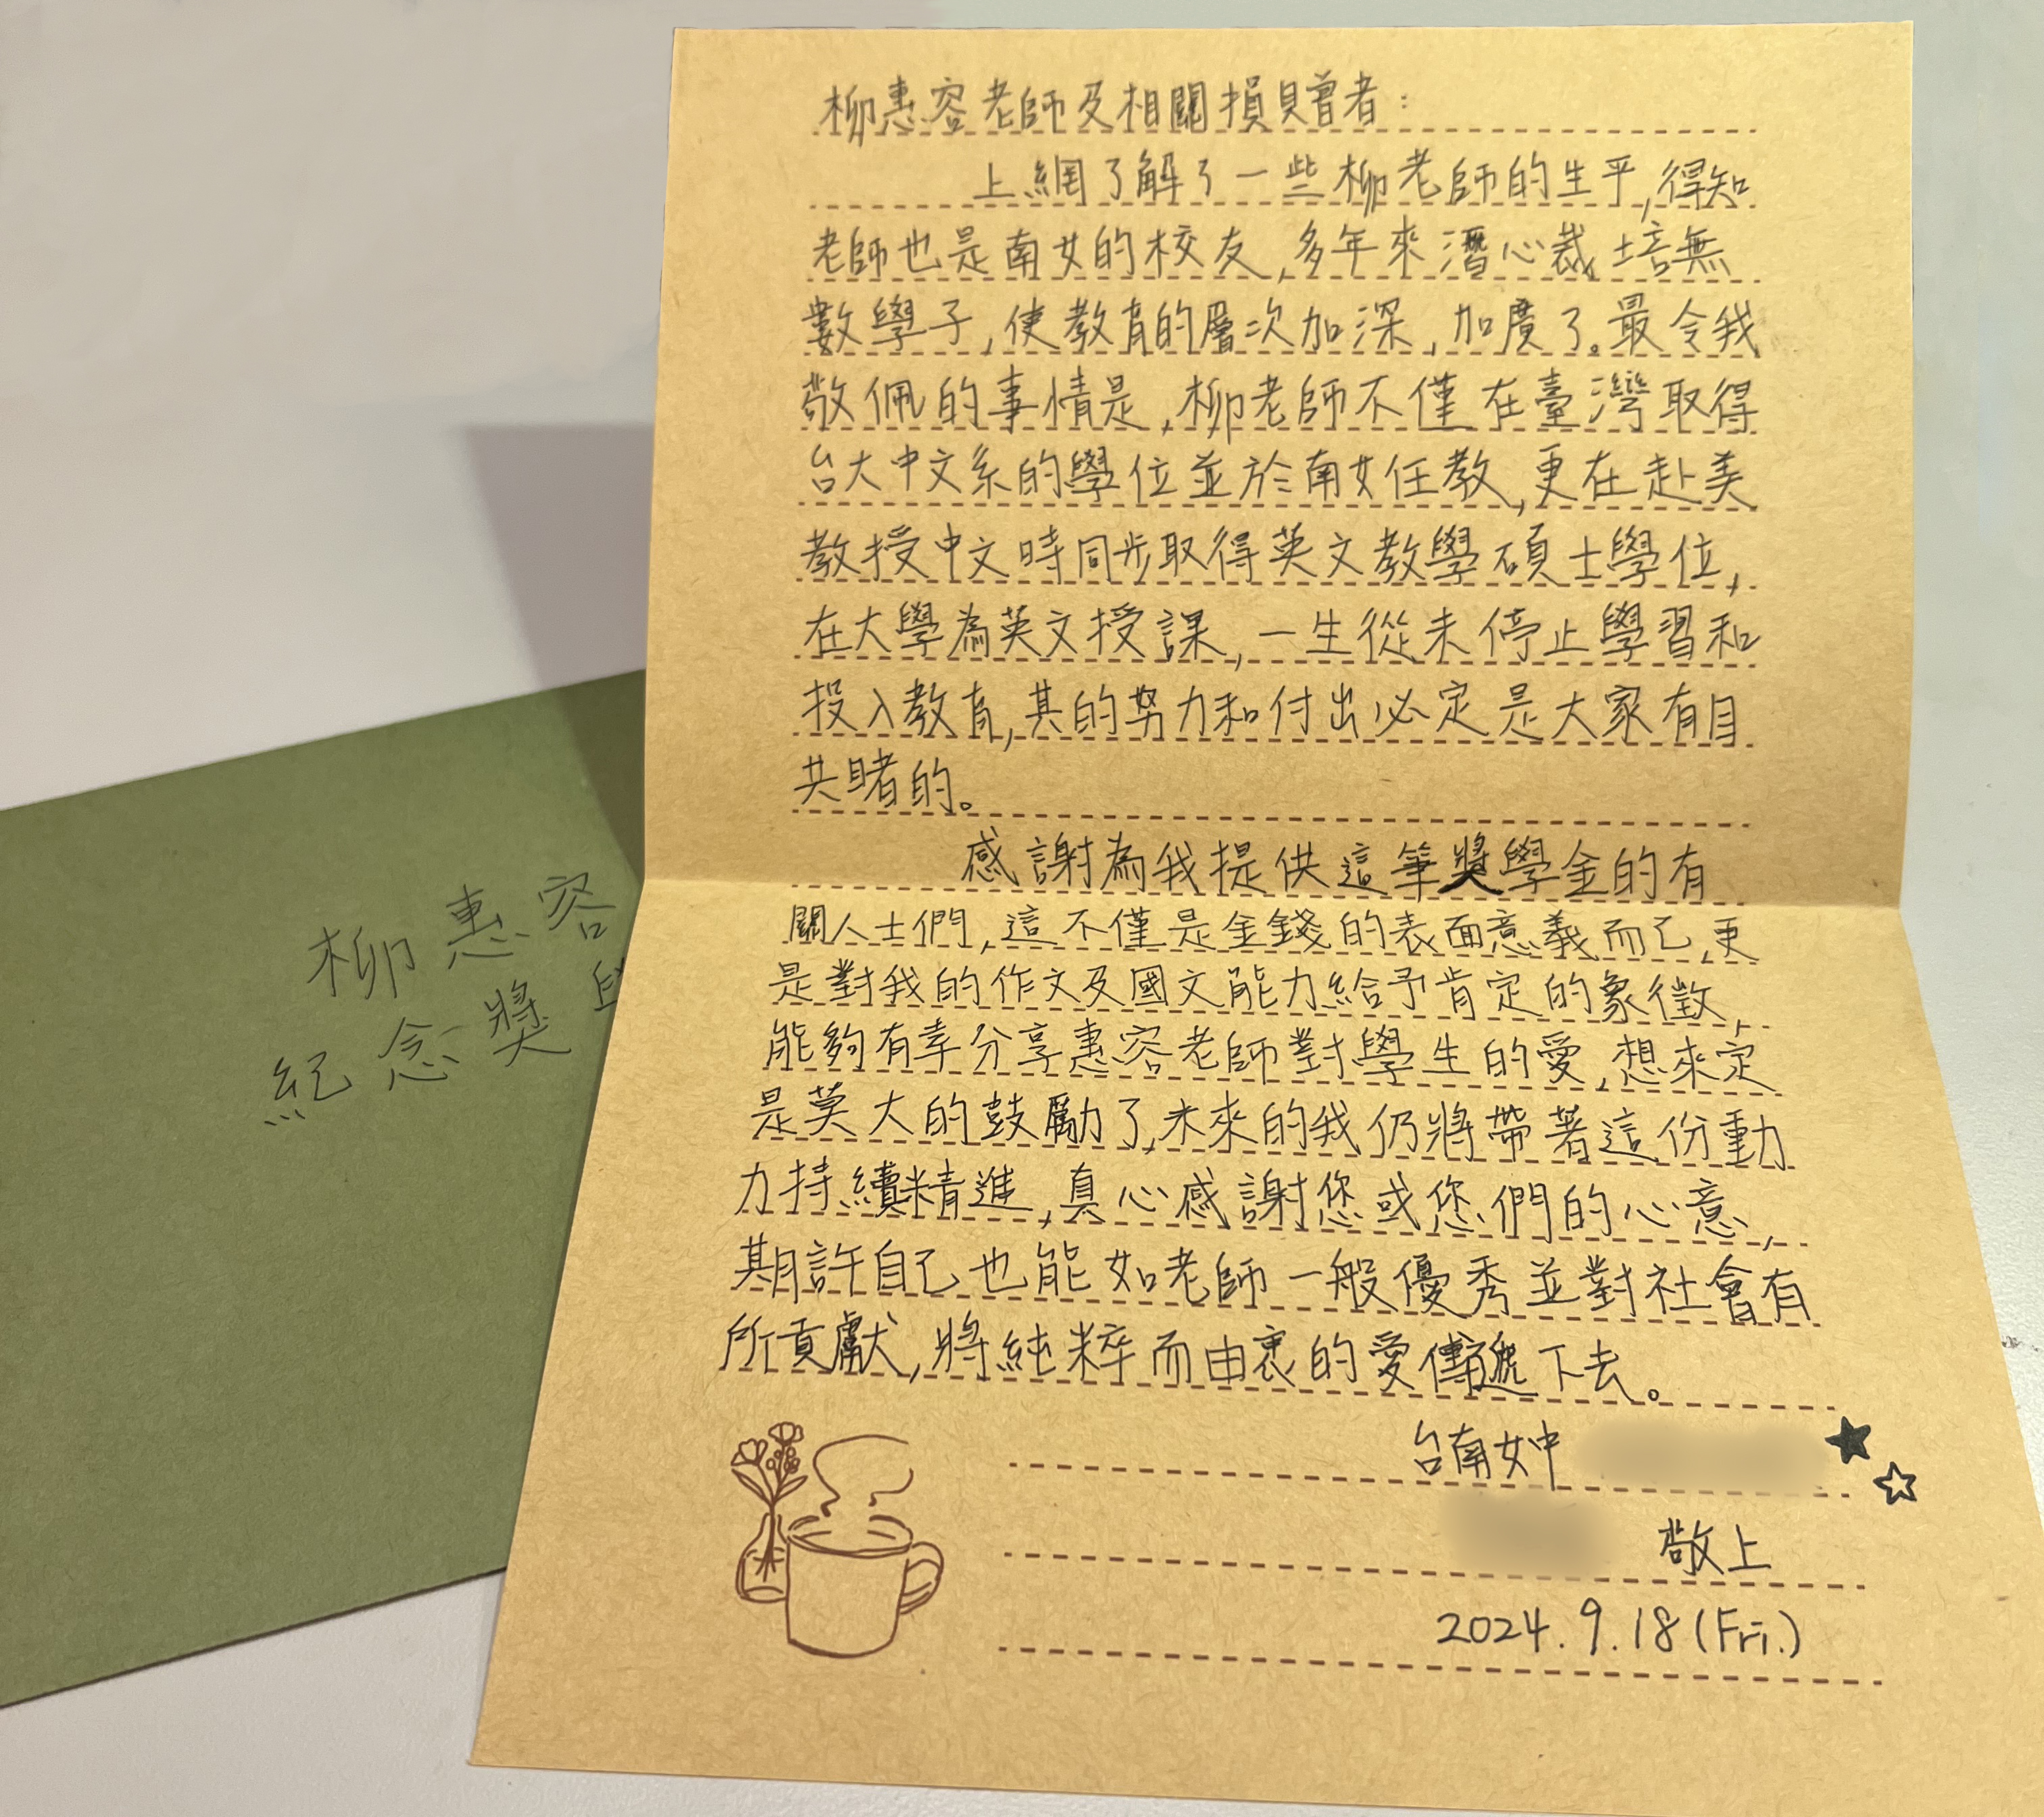 柳惠容老師及相關損贈者：
上網了解了一些柳老師的生平,得知
老師也是南女的校友,多年來潛心裁培無
數學子,使教育的層次加深,加廣了。最令我
敬佩的事情是,柳老師不僅在臺灣取得
台大中文系的學位並於南女任教,更在赴美
教授中文時同步取得英文教學碩士學位,
在大學為英文授課,一生從未停止學習和
投入教育,其的努力和付出必定是大家有目
共睹的。
感謝為我提供這筆獎學金的有
關人士們,這不僅是金錢的表面意義而已,更
是對我的作文及國文能力給予肯定的象徵,
能夠有幸分享惠容老師對學生的愛,想來定
是莫大的鼓勵了,未來的我仍將帶著這份動
力持續精進,真心感謝您或您們的心意,
期許自己也能如老師一般優秀並對社會有
所貢獻,將純粹而由衷的愛傳遞下去。
台南女中
敬上
2024.9.18(Fri.)
柳惠容
紀念獎